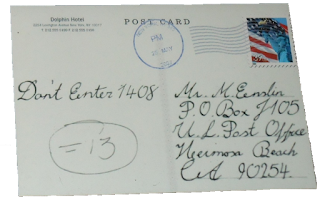 Dolphin Hotel
POST CARD
Don't Enter 1408
= 13
Mr. M. Enslin
P.O. Box 1105
U.S. Post Office
Hermosa Beach
CA 90254.